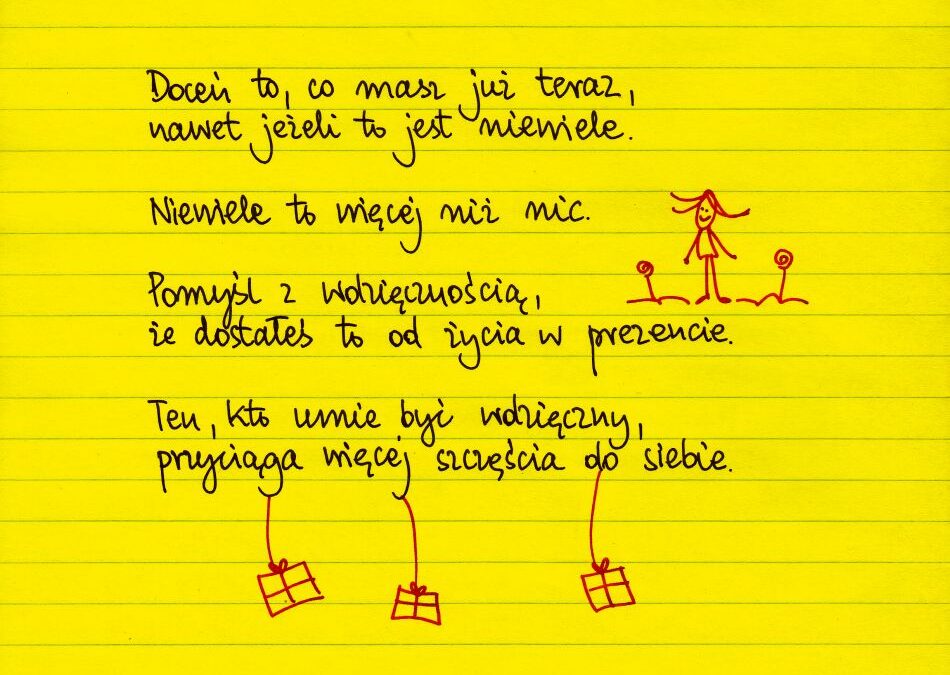 Doceń to, co masz już teraz,
nawet jeżeli to jest niewiele.
Niewiele to więcej niż nic.
Pomyśl z wdzięcznością,
że dostałeś to od życia w prezencie.
Ten, kto umie być wdzięczny,
przyciąga więcej szczęścia do siebie.